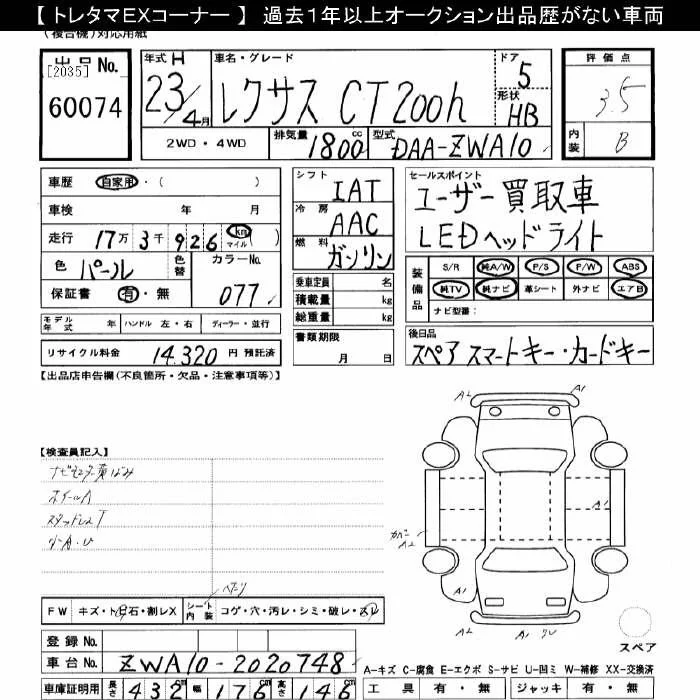 【 トレタマEXコーナー 】 過去1年以上オークション出品歴がない車両
(複合機)対応用紙
出品No.
[2035]
60074
年式 H
23/4月
車名・グレード
レクサス CT200h
ドア 5
形状 HB
2WD・4WD
排気量 1800cc
型式 DAA-ZWA10
評価点
3.5
内装 B
車歴 自家用・( )
車検 年 月
走行 17万3千926 km マイル ( )
色 パール
色替
カラーNo. 077
保証書 有・無
シフト IAT
冷房 AAC
燃料 ガソリン
乗車定員 名
積載量 kg
総重量 kg
書類期限
月 日
セールスポイント
ユーザー買取車
LEDヘッドライト
装備品
S/R 純A/W P/S P/W ABS
純TV 純ナビ 革シート 外ナビ エアB
ナビ型番:
モデル年式 年 ハンドル 左・右 ディーラー・並行
リサイクル料金 14,320 円 預託済
後日品
スペアスマートキー・カードキー
【出品店申告欄(不良箇所・欠品・注意事項等)】
【検査員記入】
ホイールA
スタッドレスT
A2
A1
A1
カバー
A2
A2
A1
スペア
FW キズ・ト 石・割レX
シート内装 コゲ・穴・汚レ・シミ・破レ・スレ
登録No.
車台No. ZWA10-2020748
車庫証明用 長さ 432cm 幅 176cm 高さ 146cm
A-キズ C-腐食 E-エクボ S-サビ U-凹ミ W-補修 XX-交換済
工具 有・無 ジャッキ 有・無